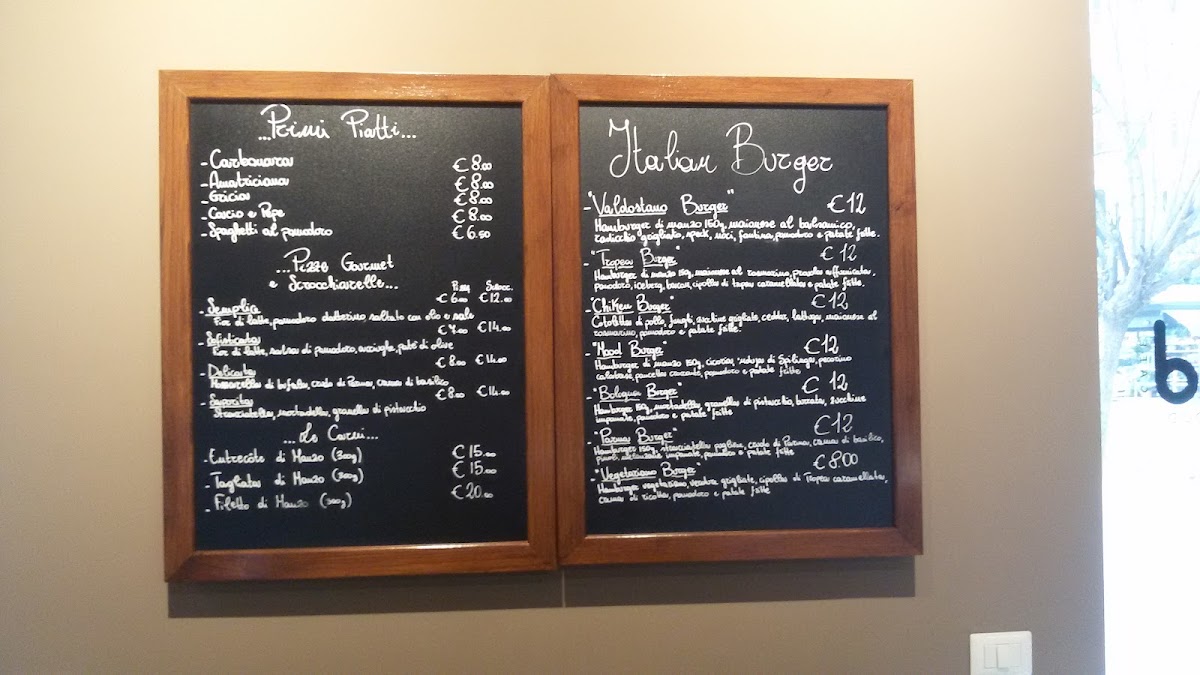 ...Primi Piatti...
- Carbonara € 8.00
- Amatriciana € 8.00
- Gricia € 8.00
- Cacio e Pepe € 8.00
- Spaghetti al pomodoro € 6.50
...Pizze Gourmet
e Scrocchiarelle...
Pizza Scrocc.
- Semplice € 6.00 € 12.00
Fior di latte, pomodoro datterino saltato con olio e sale
- Sofisticata € 7.00 € 14.00
Fior di latte, salsa di pomodoro, acciughe, patè di olive
- Delicata € 8.00 € 14.00
Mozzarella di bufala, crudo di Parma, crema di basilico
- Saporita € 8.00 € 14.00
Stracciatella, mortadella, granella di pistacchio
...Le Carni...
- Entrecôte di Manzo (300g) € 15.00
- Tagliata di Manzo (300g) € 15.00
- Filetto di Manzo (300g) € 20.00
Italian Burger
- "Valdostano Burger" € 12
Hamburger di manzo 150g, maionese al balsamico,
radicchio grigliato, speck, noci, fontina, pomodoro e patate fritte.
- "Tropea Burger" € 12
Hamburger di manzo 150g, maionese al rosmarino, provola affumicata,
pomodoro, iceberg, bacon, cipolla di tropea caramellata e patate fritte.
- "Chiken Burger" € 12
Cotoletta di pollo, funghi, zucchine grigliate, cedder, lattuga, maionese al
rosmarino, pomodoro e patate fritte.
- "Mood Burger" € 12
Hamburger di manzo 150g, cicoria, 'nduja di Spilinga, pecorino
calabrese, pancetta croccante, pomodoro e patate fritte
- "Bologna Burger" € 12
Hamburger 150g, mortadella, granella di pistacchio, burrata, zucchine
impanate, pomodoro e patate fritte
- "Parma Burger" € 12
Hamburger 150g, stracciatella pugliese, crudo di Parma, crema di basilico,
pinoli, melanzane impanate, pomodoro e patate fritte
- "Vegetariano Burger" € 8.00
Hamburger vegetariano, verdure grigliate, cipolla di Tropea caramellata,
crema di ricotta, pomodoro e patate fritte
b